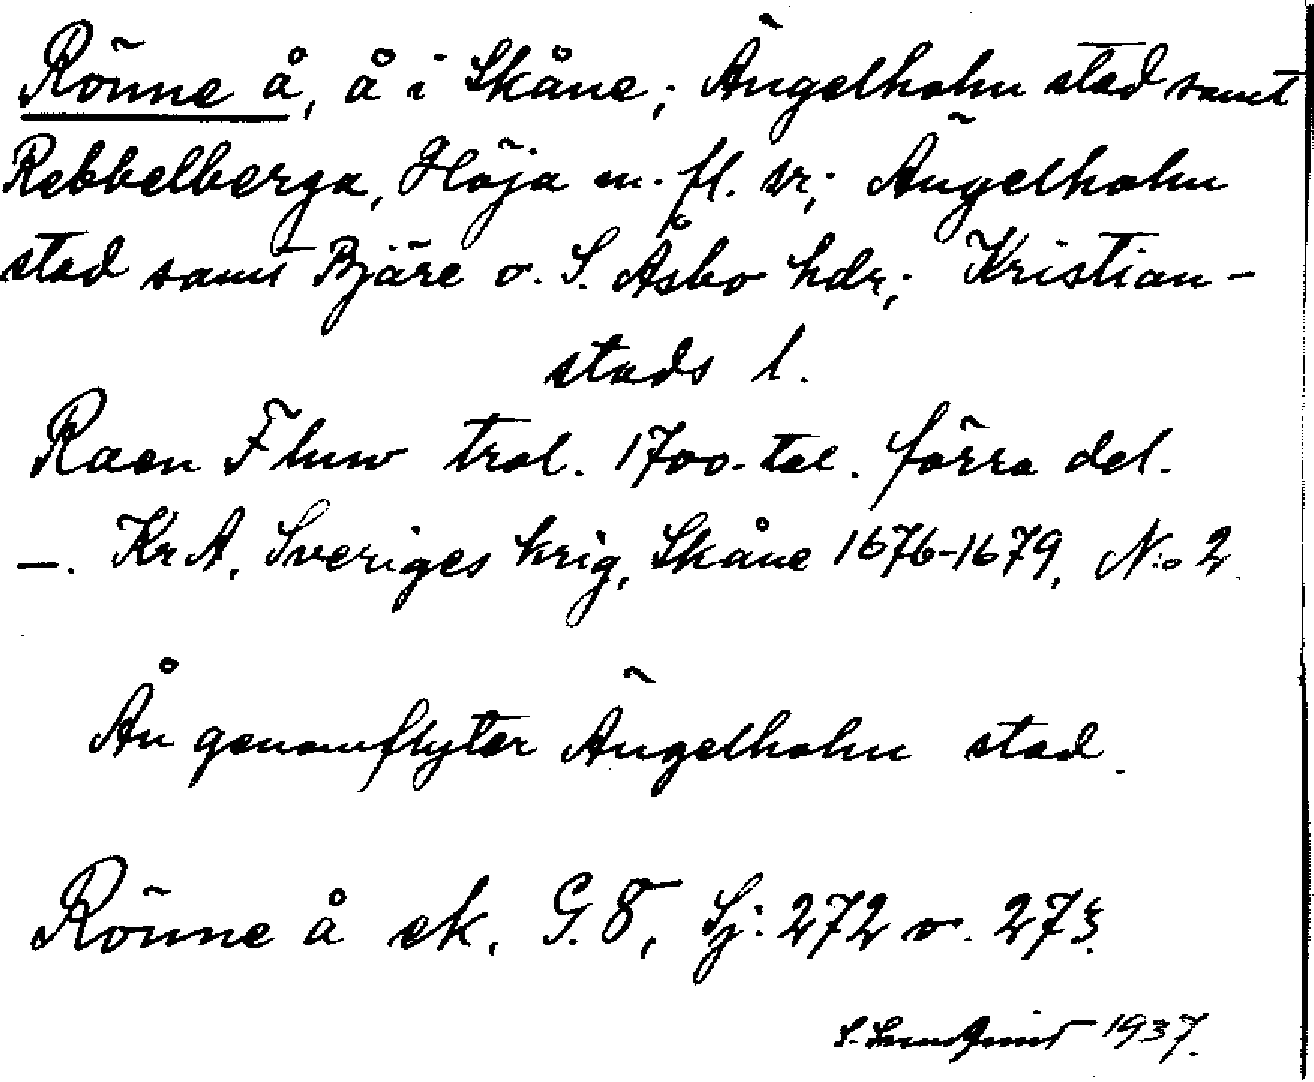 Rönne å, å i Skåne; Ängelholm stad samt
Rebbelberga, Höja m. fl. sr; Ängelholm
stad samt Bjäre o. S. Åsbo hdr; Kristian-
stads l.
Raen Fluw trol. 1700-tal. förra del.
—. KrA. Sveriges krig, Skåne 1676-1679, N:o 2
Ån genomflyter Ängelholm stad.
Rönne å ek. G. 8, Sj: 272 o. 273.
S. 1937.